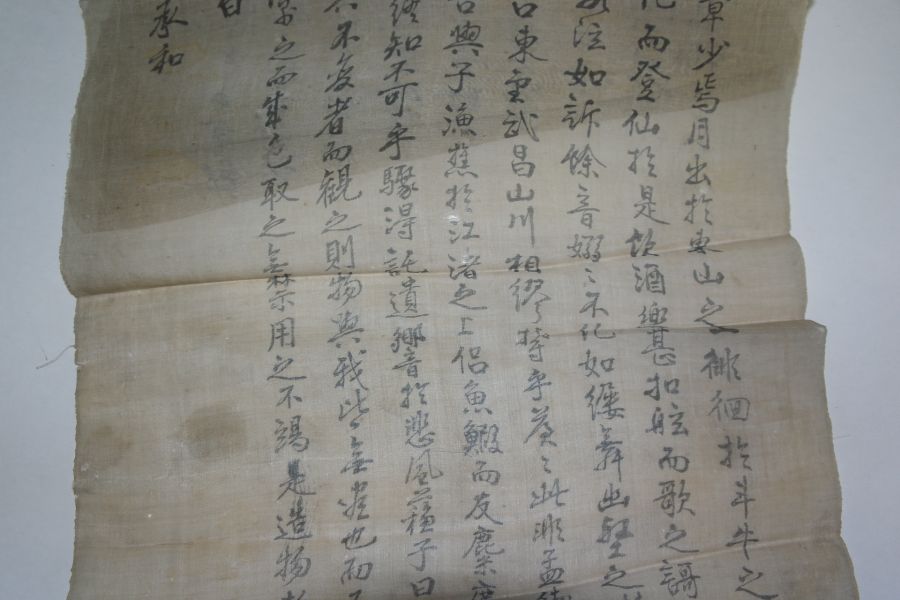 章少焉月出於東山之徘徊於斗牛之
化而登仙於是飲酒樂甚扣舷而歌之謌
泣如訴餘音嫋〻不如縷舞幽壑之
口東望武昌山川相繆鬱乎蒼〻此非孟德
與子漁樵於江渚之上侶魚鰕而友麋鹿
終知不可乎驟得託遺響於悲風蘓子曰
不變者而觀之則物與我皆無盡也而
之而成色取之無禁用之不竭是造物
白
承和